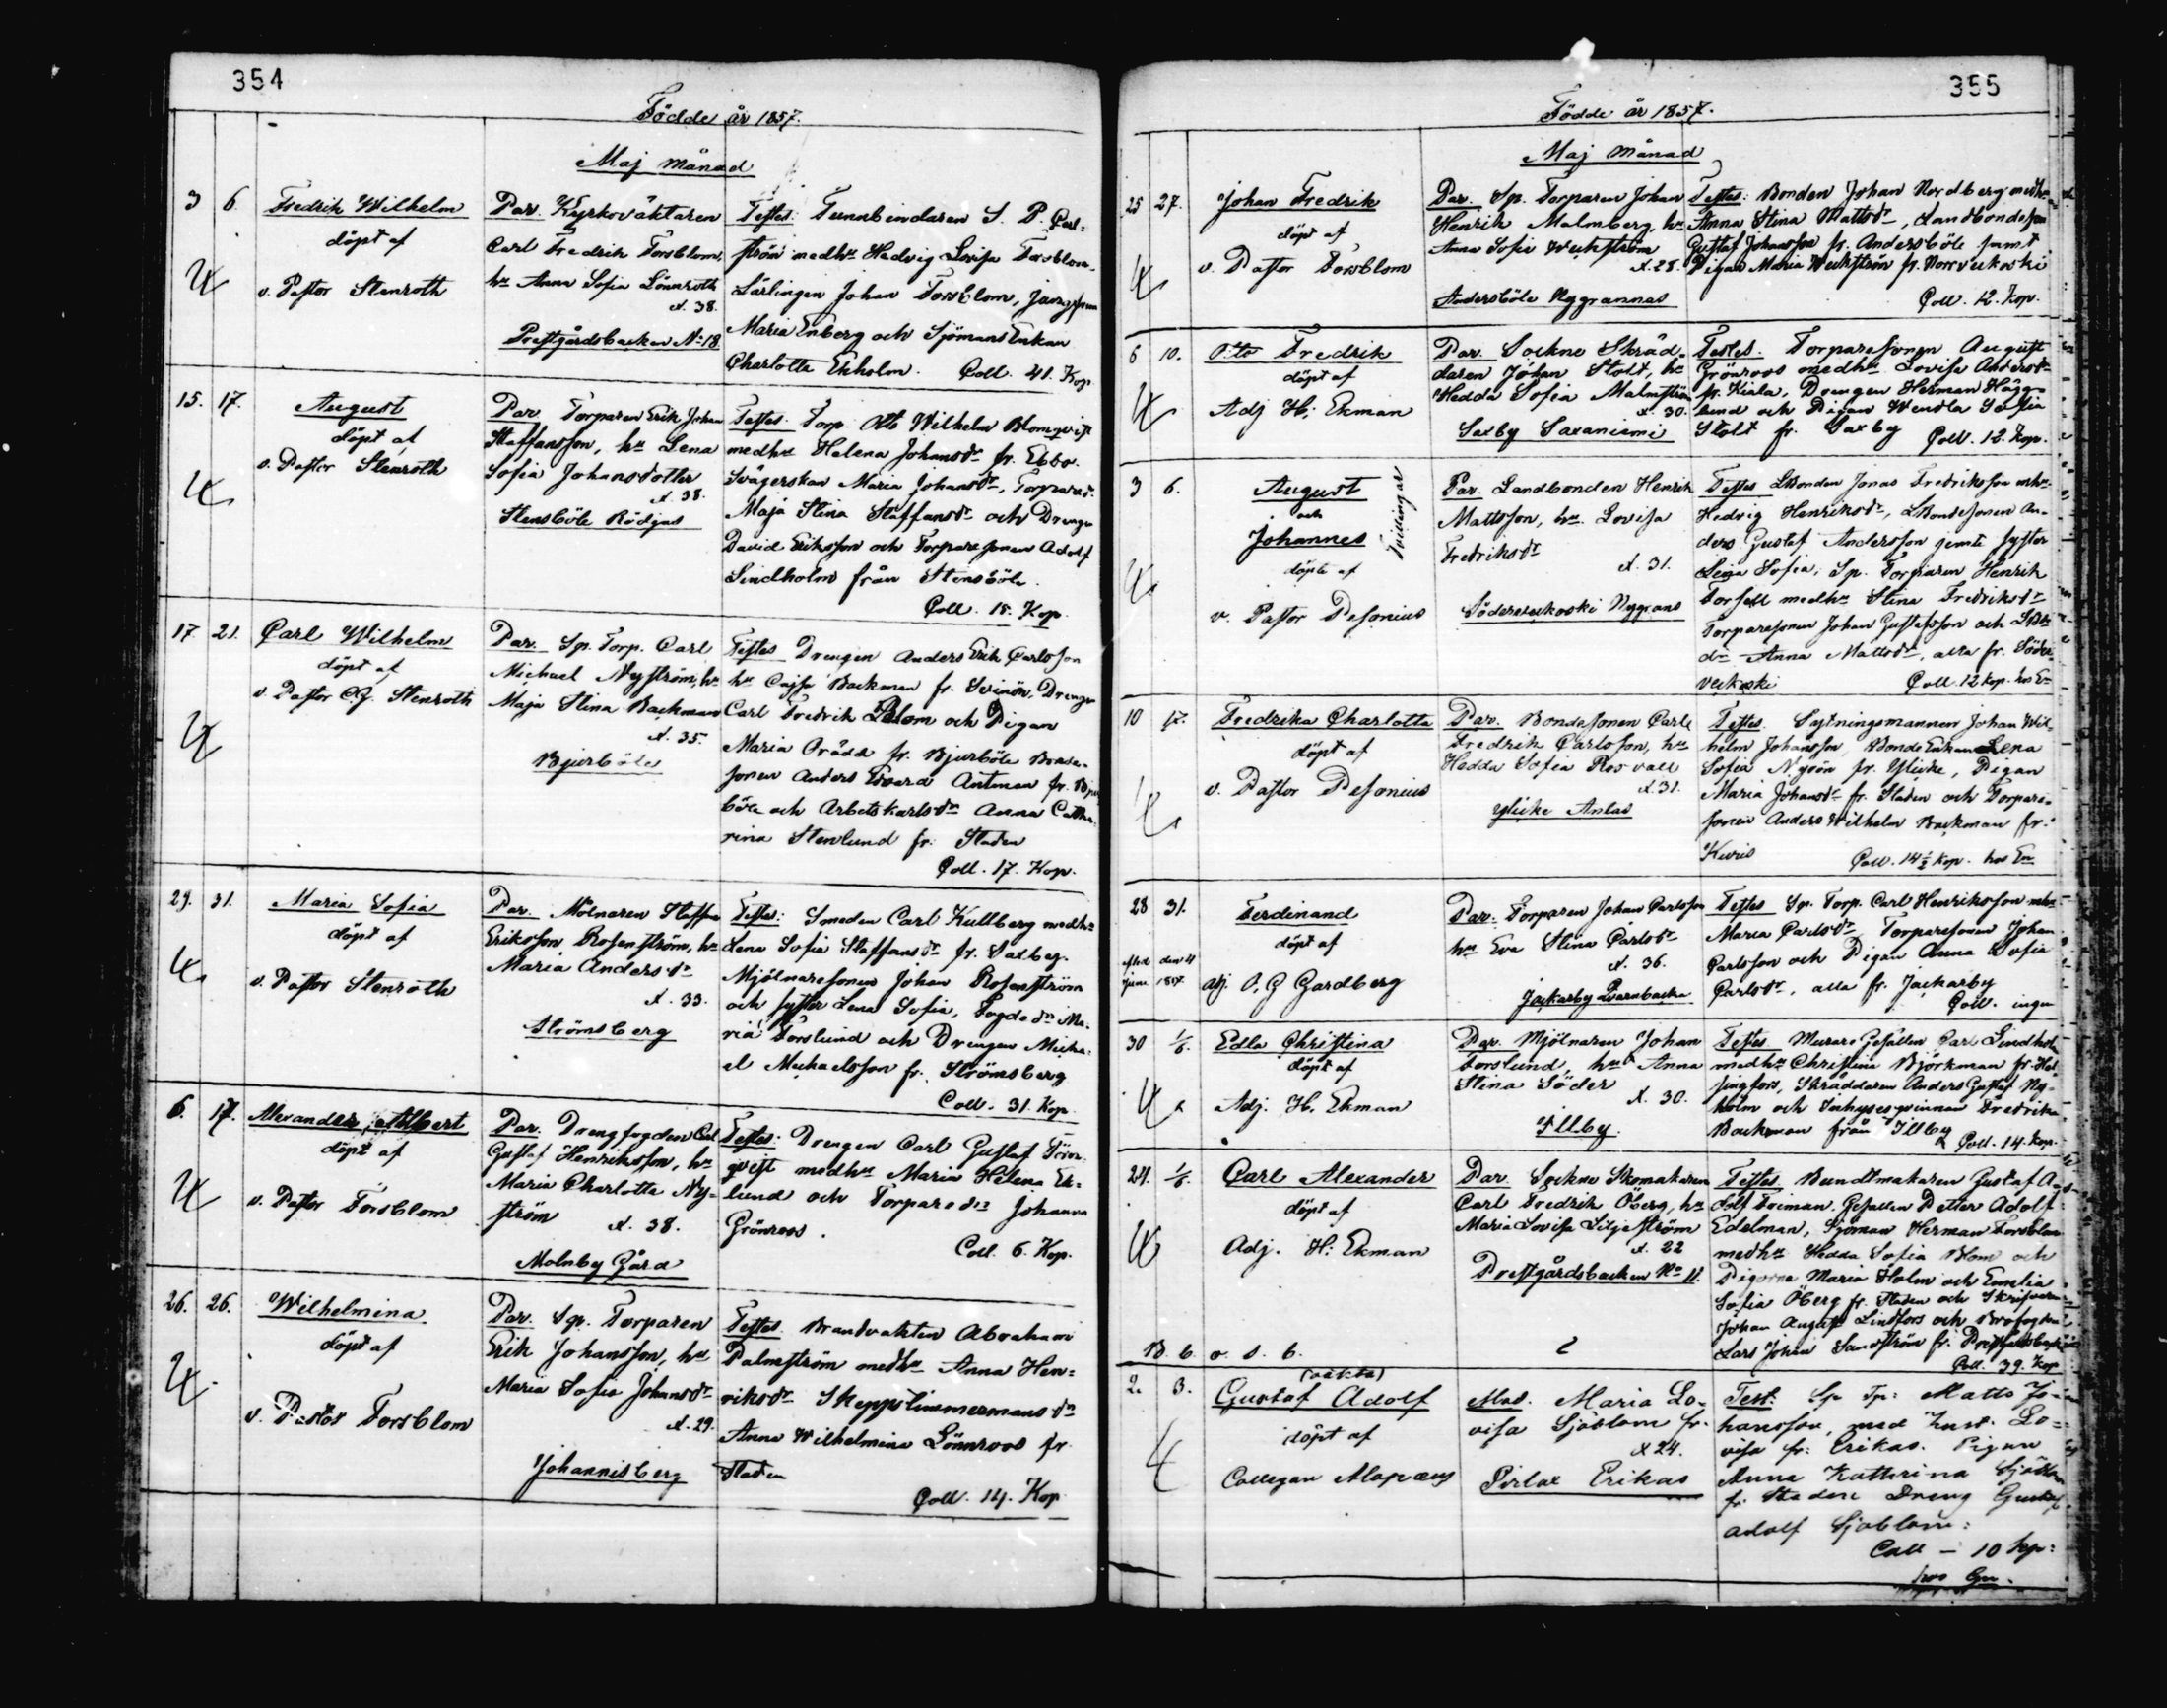 354
Födde år 1857.
Maj månad
3 6 Fredrik Wilhelm
döpt af
v. Pastor Stenroth
Par. Kyrkováktaren
Carl Fredrik Forsblom,
hu Anna Sofia Lönnroth
æ. 38.
Prestgårdsbacken No 18
Testes: Tunnbindaren S. P. Carl-
ström medhu Hedvig Lovisa Forsblom,
Lärlingen Johan Forsblom, Jungfrun
Maria Enberg och Sjömans Enkan
Charlotta Ekholm. Coll. 41. Kop
15. 17. August
döpt af
v. Pastor Stenroth
Par. Torparen Erik Johan
Staffansson, hu Lena
Sofia Johansdotter
æ. 38.
Stensböle Rödjas
Testes. Torp. Otto Wilhelm Blomqvist
medhu Helena Johansdr fr. Ebbo.
Svägerskan Maria Johansdr, Torpared.
Maja Stina Staffansdr och Drengen
David Eriksson och Torparesonen Adolf
Lindholm från Stensböle.
Coll. 15. Kop.
17. 21. Carl Wilhelm
döpt af
v. Pastor C.G. Stenroth
Par. Sp. Torp. Carl
Michael Nyström, hu
Maja Stina Backman
æ. 35.
Bjurböle
Testes Drengen Anders Erik Carlsson
hu Cajsa Backman fr. Svinö, Drengen
Carl Fredrik Blom och Pigan
Maria Orädd fr. Bjurböle Bonde-
sonen Anders Edvard Antman fr. Bjur
böle och Arbetskarlsdr Anna Catha-
rina Stenlund fr. Staden
Coll. 17. Kop.
29. 31. Maria Sofia
döpt af
v. Pastor Stenroth
Par. Mölnaren Staffan
Eriksson Rosenström, hu
Maria Andersdr
æ. 33.
Strömsberg
Testes: Smeden Carl Kullberg medhu
Lena Sofia Staffansdr fr. Saxby.
Mjölnaresonen Johan Rosenström
och syster Lena Sofia, Fogdedn Ma-
ria Forslund och Drengen Micha-
el Michaelsson fr. Strömsberg
Coll. 31. Kop
6. 17. Alexander Albert
döpt af
v. Pastor Forsblom
Par. Drengfogden Carl
Gustaf Henriksson, hu
Maria Charlotta Ny-
ström æ. 38.
Molnby Gård
Testes: Drengen Carl Gustaf Törn-
qvist medhu Maria Helena Ek-
lund och Torparedn Johanna
Grönroos.
Coll. 6. Kop.
26. 26. Wilhelmina
döpt af
v. Pastor Forsblom
Par. Sp. Torparen
Erik Johansson, hu
Maria Sofia Johansdr
æ. 29.
Johannisberg
Testes. Brandvakten Abraham
Palmström medhu Anna Hen-
riksdr Skeppstimmermansdn
Anna Wilhelmina Lönnroos fr.
Staden
Coll. 14. Kop
355
Födde år 1857.
Maj månad
25 27. Johan Fredrik
döpt af
v. Pastor Forsblom
Par. Sp. Torparen Johan
Henrik Malmberg, hu
Anna Sofia Weckström
æ. 28.
Andersböle Nygrannas
Testes: Bonden Johan Nordberg medhu
Anna Stina Mattsdr, Landbondeson
Gustaf Johansson fr. Andersböle samt
Pigan Maria Weckström fr. Norrveckoski
Coll. 12. Kop.
6 10. Otto Fredrik
döpt af
Adj H: Ekman
Par. Sockne Skräd-
daren Johan Stolt, hu
Hedda Sofia Malmström
æ. 30.
Saxby Saxaniemi
Testes. Torparesonen August
Grönroos medhu Lovisa Andersdr
fr. Kiala, Drengen Herman Hägg-
lund och Pigan Wendla Sofia
Stolt fr. Saxby Coll. 12. Kop.
3 6. August
och
Johannes
Tvillingar
döpte af
v. Pastor Pesonius
Par. Landbonden Henrik
Mattsson, hu. Lovisa
Fredriksdr
æ. 31.
Söderveckoski Nygrans
Testes LBonden Jonas Fredriksson mhu
Hedvig Henriksdr, LBondesonen An-
ders Gustaf Andersson jemte syster
Lena Sofia, Sp. Torparen Henrik
Forsell medhu Stina Fredriksdr
Torparesonen Johan Gustafsson och LBde
dr Anna Mattsdr, alla fr. Söder-
veckoski Coll. 12 kop. hos En
10 17. Fredrika Charlotta
döpt af
v. Pastor Pesonius
Par. Bondesonen Carl
Fredrik Carlsson, hu
Hedda Sofia Rosvall
æ. 31.
Ylicke Anlas
Testes. Sextningsmannen Johan Wil-
helm Johansson, Bonde Enkan Lena
Sofia Nysön fr. Ylicke, Pigan
Maria Johansdr fr. Staden och Torpare-
sonen Anders Wilhelm Backman fr.
Kuris Coll. 14½ kop. hos En
28 31. Ferdinand
döpt af
den 4
Juni 1857. adj. O, G Gardberg
Par. Torparen Johan Carlsson
hu Eva Stina Carlsdr
æ. 36.
Jackarby Qvarnbacka
Testes Sp. Torp. Carl Henriksson mhu
Maria Carlsdr, Torparesonen Johan
Carlsson och Pigan Anna Sofia
Carlsdr, alla fr. Jackarby
Coll. ingen
30 1/6. Edla Christina
döpt af
Adj. H. Ekman
Par. Mjölnaren Johan
Forslund, hu Anna
Stina Söder
æ. 30.
Illby
Testes Murare Gesällen Carl Lindholm
medhu Christina Björkman fr. Hel-
singfors, Skräddaren Anders Gustaf Ny-
holm och Inhysesqvinnan Fredrika
Backman från Illby Coll. 14. Kop.
24. 1/6. Carl Alexander
döpt af
Adj. H: Ekman
Par. Sockne Skomakaren
Carl Fredrik Öberg, hu
Maria Lovisa Liljeström
æ. 22
Prestgårdsbacken No 11.
Testes. Bundtmakaren Gustaf A-
dolf Freiman, Gesällen Petter Adolf
Edelman, Sjöman Herman Forsblom
medhu Hedda Sofia Blom och
Pigorna Maria Holm och Emelia
Sofia Öberg fr. Staden och Skrifvaren
Johan August Lindfors och Brofogden
Lars Johan Sandström fr. Prestgårdsbacken
Coll. 39. Kop
B. b. o. s. b.
2. 3. (oäkta)
Gustaf Adolf
döpt af
Collegan Alopæus
Mod. Maria Lo-
visa Sjöblom fr.
æ 24.
Pirlax Erikas
Test: Sp Tp: Matts Jo-
hansson, med hust. Lo-
visa fr: Erikas. Pigan
Anna Kathrina Sjöblom
fr. Staden Dreng Gustaf
adolf Sjöblom:
Coll - 10 kp:
hos En.